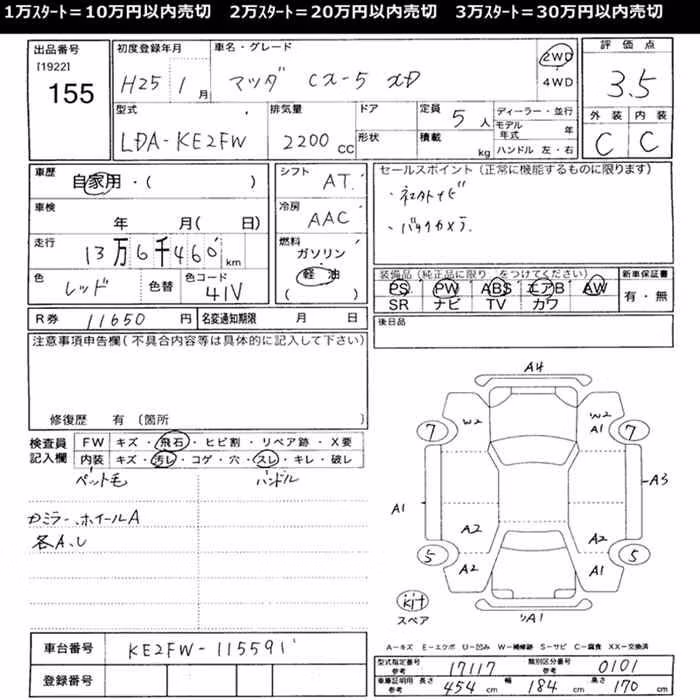 1万ｽﾀｰﾄ＝10万円以内売切　2万ｽﾀｰﾄ＝20万円以内売切　3万ｽﾀｰﾄ＝30万円以内売切
出品番号
[1922]
155
初度登録年月
H25 1月
車名・グレード
マツダ CX-5 XD
2WD
4WD
評価点
3.5
型式
LDA-KE2FW
排気量
2200 CC
ドア
形状
定員
5人
積載
kg
ディーラー・並行
モデル年式 年
ハンドル 左・右
外装 内装
C C
車歴
自家用・( )
シフト
AT
車検
年 月( 日)
冷房
AAC
走行
13万6千460 km
燃料
ガソリン
軽油
( )
色
レッド
色替
色コード
41V
セールスポイント（正常に機能するものに限ります）
・バックカメラ
装備品（純正品に限り をつけてください）
PS PW ABS エアB AW
SR ナビ TV カワ
新車保証書
有・無
R券 11650 円
名変通知期限 月 日
後日品
注意事項申告欄(不具合内容等は具体的に記入して下さい)
修復歴 有（箇所 ）
検査員記入欄
FW キズ・飛石・ヒビ割・リペア跡・X要
内装 キズ・汚レ・コゲ・穴・スレ・キレ・破レ
ペット毛 ハンドル
ミラー、ホイールA
各A、U
A4
W2 W2
A1
7 7
A1 A3
A2 A2
5 5
A2 A1
kit
スペア
A1
車台番号 KE2FW-115591
登録番号
A-キズ E-エクボ U-凹み W-補修跡 S-サビ C-腐食 XX-交換済
型式指定番号 参考 17117 類別区分番号 参考 0101
車庫証明用 参考 長さ 454 cm 幅 184 cm 高さ 170 cm